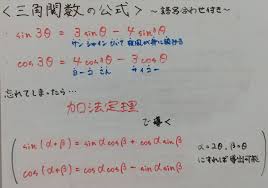 ＜三角関数の公式＞ ～語呂合わせ付き～
sin 3θ = 3 sinθ - 4 sin³θ
サンシャイン
cos 3θ = 4 cos³θ - 3 cosθ
忘れてしまったら…
加法定理
で導く
sin (α+β) = sinα cosβ + cosα sinβ
α=2θ, β=θ
cos (α+β) = cosα cosβ - sinα sinβ
にすれば導出可能